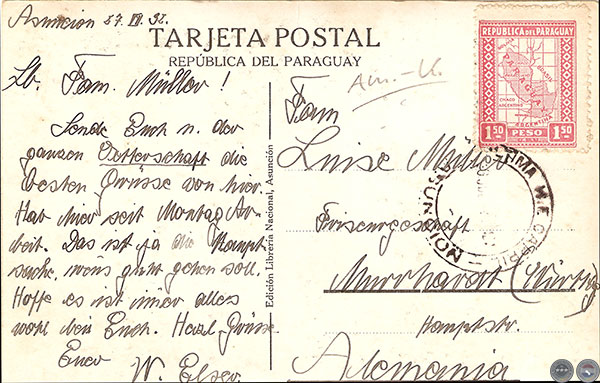 Asuncion 27. VI. 32.
TARJETA POSTAL
REPÚBLICA DEL PARAGUAY
Lb. Fam. Müller!
Sende Euch u. der
ganzen Vetterschaft die
besten Grüsse von hier.
Hab hier seit Montag Ar-
beit. Das ist ja die Haupt
sache, wens guht gehen soll.
Hoffe es ist imer alles
wohl bei Euch. Herzl. Grüsse
Euer
W. Elser
Edición Librería Nacional, Asunción
Fam
Luise Müller
Friseurgeschäft
Murrhardt (Württg)
Hauptstr.
Alemania
REPUBLICA DEL PARAGUAY
PARAGUAY
BRASIL
CHACO
ARGENTINO
ARGENTINA
1.50 PESO 1.50
ASUNCION
PORTAL GUARANI